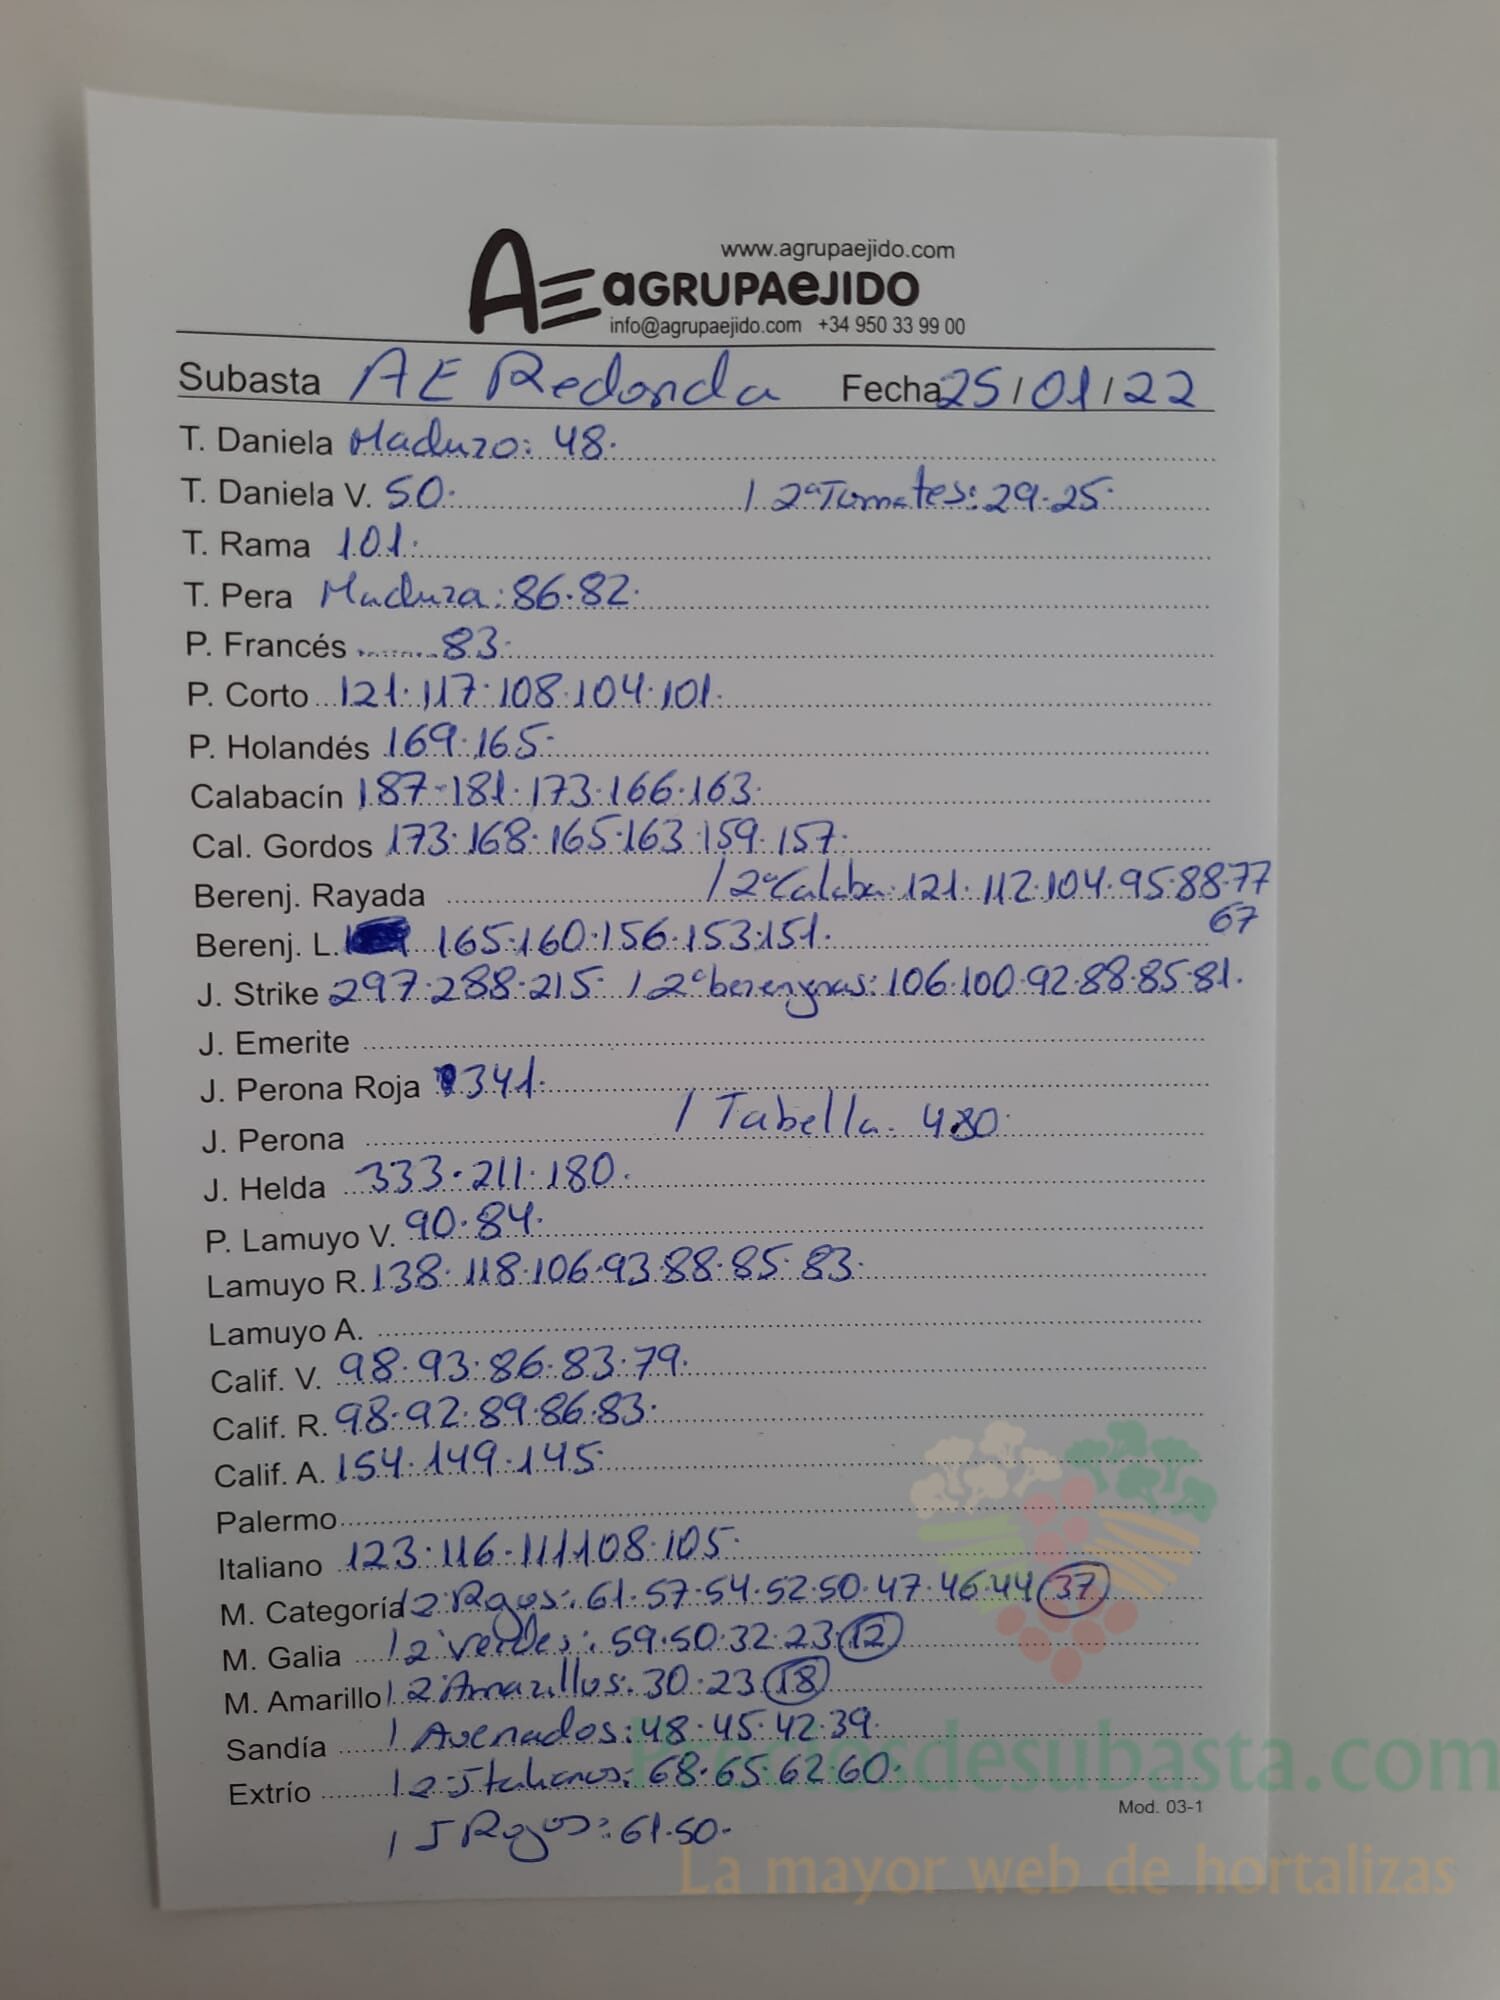 www.agrupaejido.com
AE aGRUPAeJIDO
info@agrupaejido.com +34 950 33 99 00
Subasta AE Redonda Fecha 25/01/22
T. Daniela Maduro: 48.
T. Daniela V. 50. / 2ª Tomates: 29.25.
T. Rama 101.
T. Pera Madura: 86.82.
P. Francés 83.
P. Corto 121.117.108.104.101.
P. Holandés 169.165.
Calabacín 187-181.173.166.163.
Cal. Gordos 173.168.165.163.159.157.
Berenj. Rayada / 2ª Calaba: 121.112.104.95.88.77
67
Berenj. L. 165.160.156.153.151.
J. Strike 297.288.215. / 2ª berenjnas: 106.100.92.88.85.81.
J. Emerite
J. Perona Roja 341.
J. Perona / Tabella. 480.
J. Helda 333.211.180.
P. Lamuyo V. 90.84.
Lamuyo R. 138.118.106.93.88.85.83.
Lamuyo A.
Calif. V. 98.93.86.83.79.
Calif. R. 98.92.89.86.83.
Calif. A. 154.149.145.
Palermo
Italiano 123.116.111.108.105.
M. Categoría / 2ª Rojos: 61.57.54.52.50.47.46.44 37
M. Galia / 2ª Verdes: 59.50.32.23 12
M. Amarillo / 2ª Amarillos: 30.23 18
Sandía / Asenados: 48.45.42.39.
Extrío / 2ª Italianos: 68.65.62.60.
/ J Rojos: 61.50.
Mod. 03-1
Preciosdesubasta.com
La mayor web de hortalizas